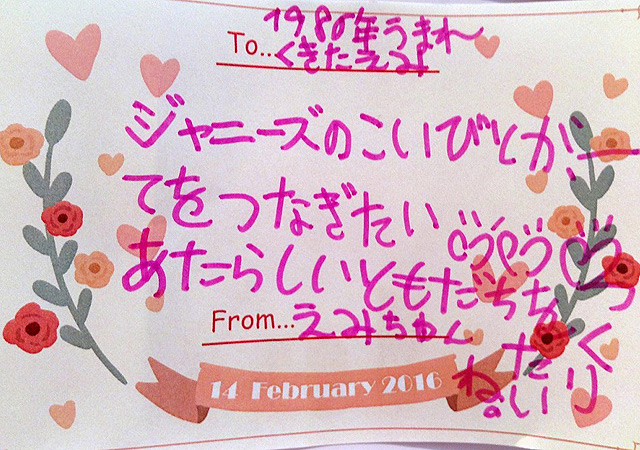 1980年うまれ
To... くきたえみ
ジャニーズのこいびとが
てをつなぎたい
あたらしいともだち
From... えみちゃん
14 February 2016